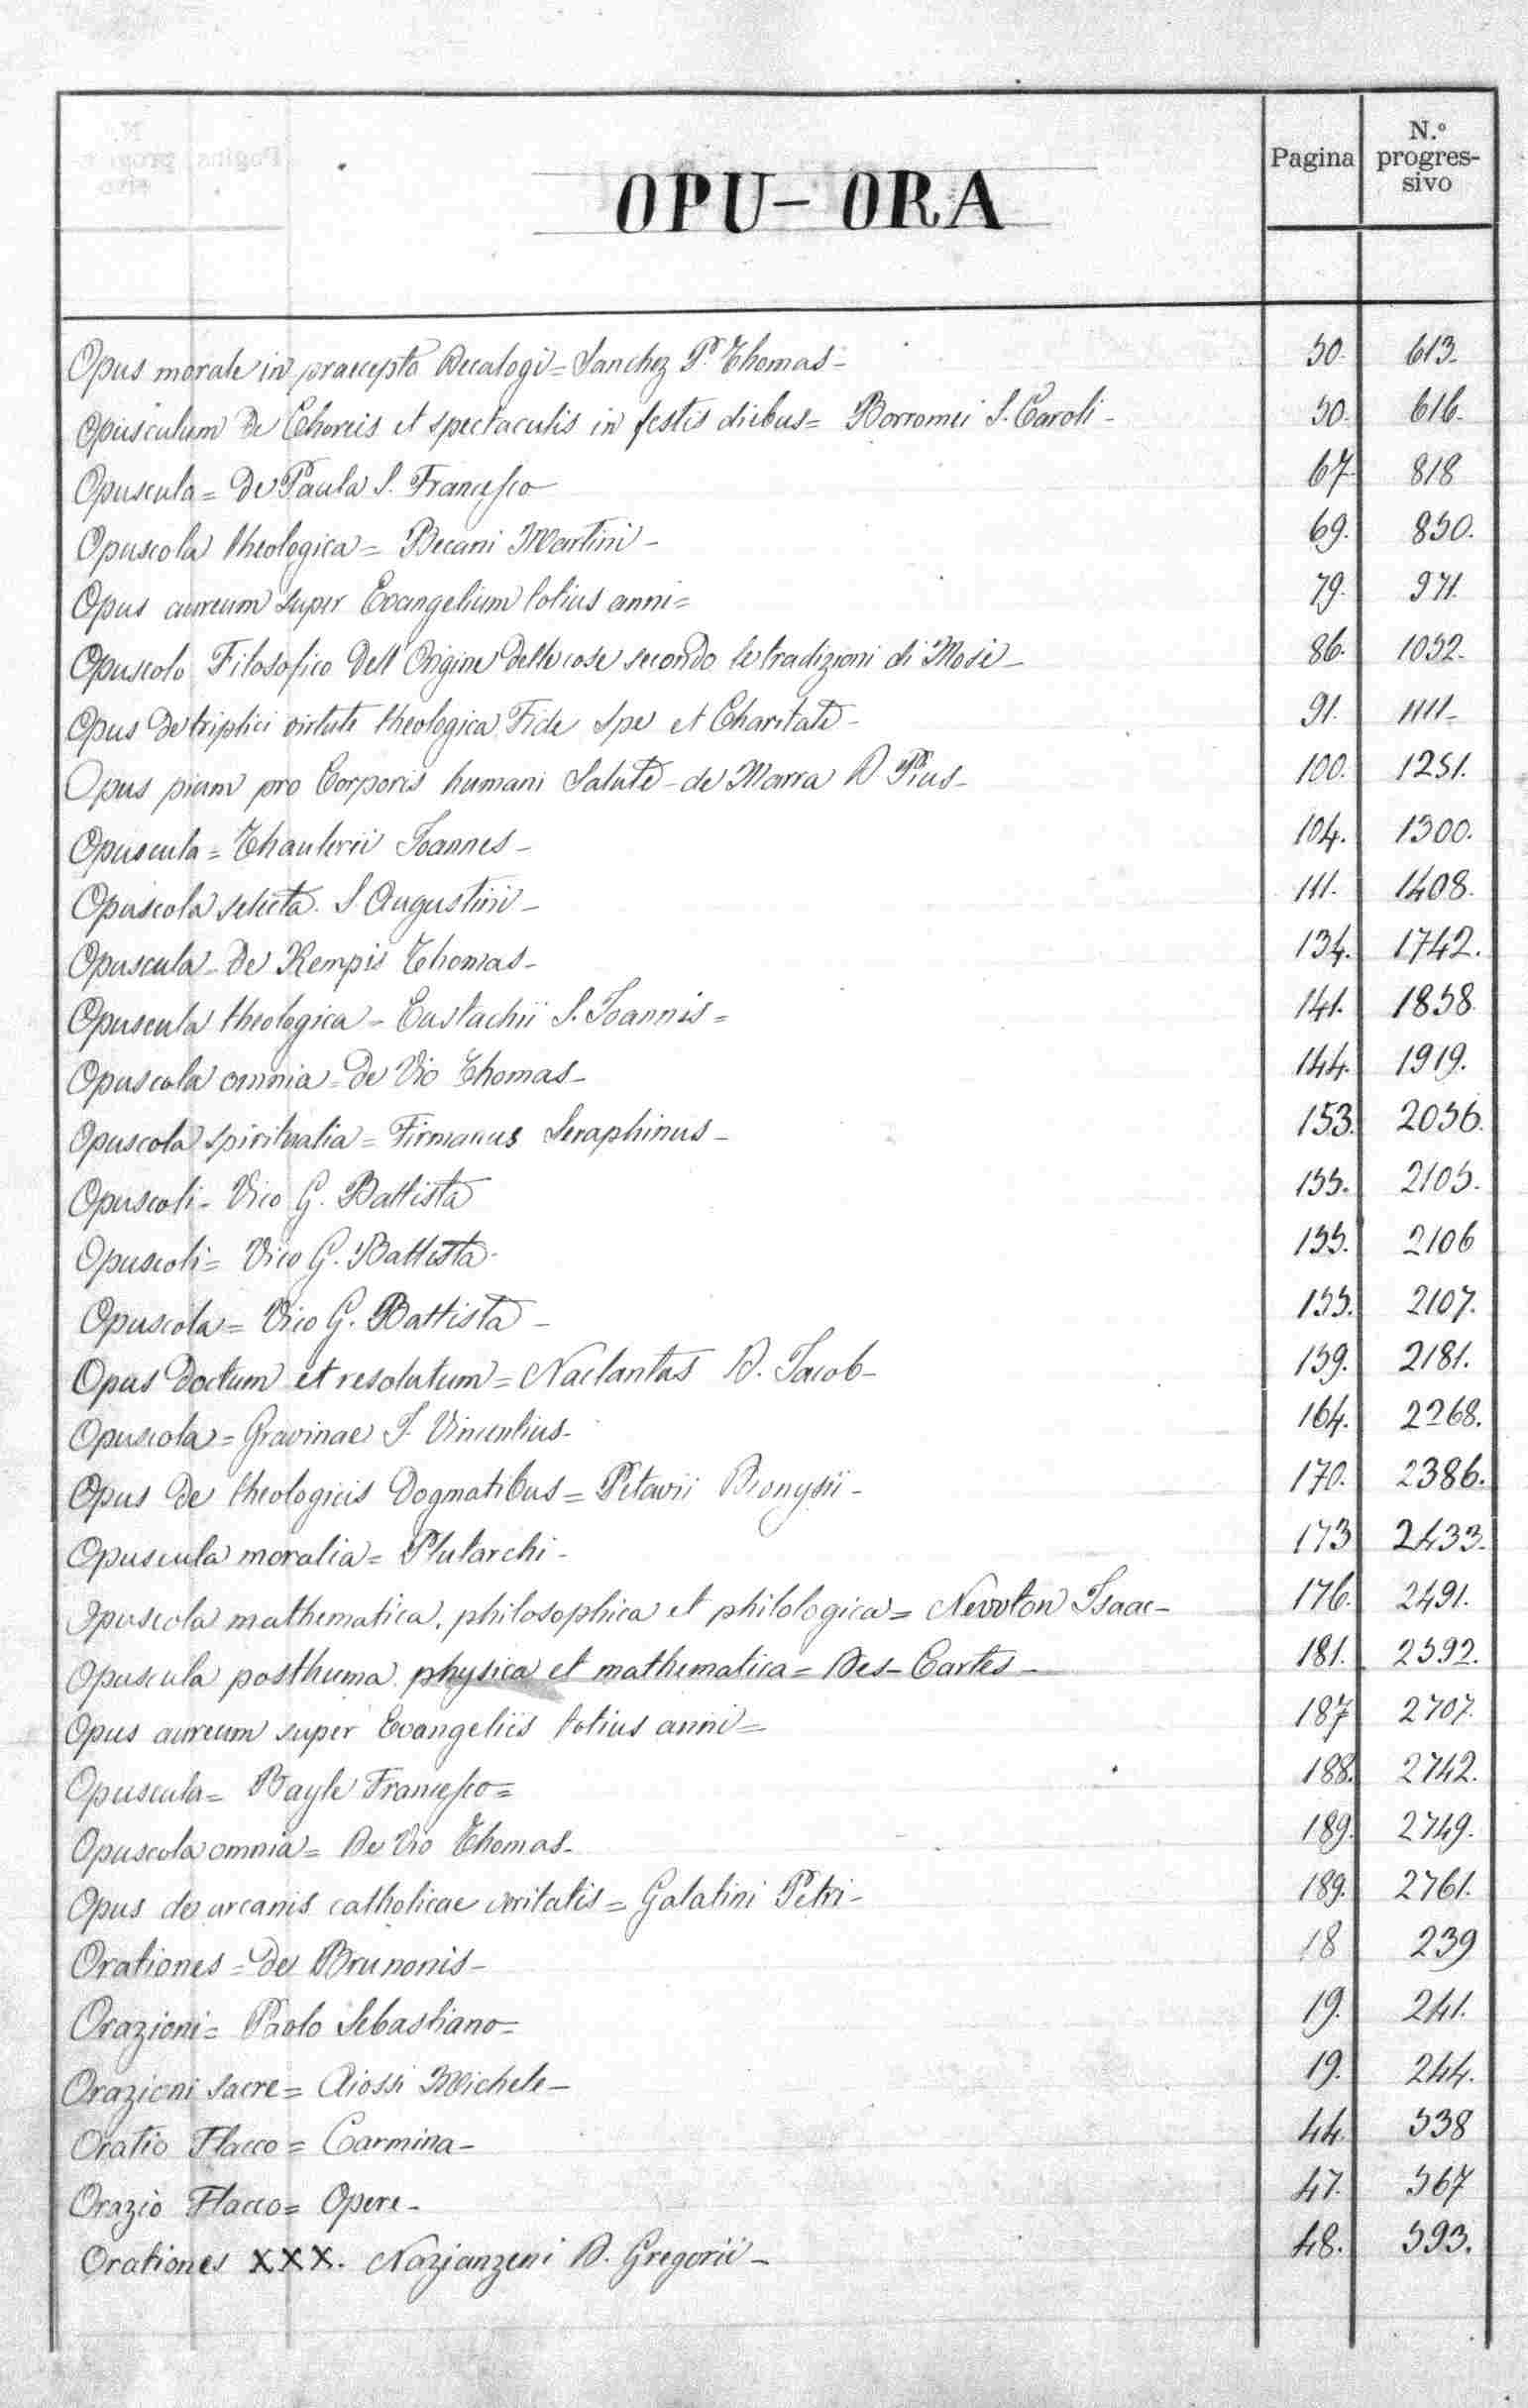 Pagina
N.º progres-
sivo
OPU - ORA
Opus morale in praecepta Decalogi = Sanchez P. Thomas - 50. 613.
Opusculum de Choreis et spectaculis in festis diebus = Borromei S. Caroli - 50. 616.
Opuscula = De Paula S. Francesco 67. 818
Opuscola theologica = Becani Martini - 69. 850.
Opus aureum super Evangelium totius anni = 79. 971.
Opuscolo Filosofico Dell'Origine delle cose secondo le tradizioni di Mosè - 86. 1052.
Opus De triplici virtute theologica Fide Spe et Charitate - 91. 1111.
Opus pium pro Corporis humani Salute - de Marra D. Pius - 100. 1251.
Opuscula = Thaulerii Joannes - 104. 1300.
Opuscola selecta. S Augustini - 111. 1408.
Opuscula - De Kempis Thomas - 134. 1742.
Opuscula theologica - Eustachii S. Joannis = 141. 1858.
Opuscola omnia = De Vio Thomas - 144. 1919.
Opuscola spiritualia = Firmanus Seraphinus - 153. 2056.
Opuscoli - Vico G. Battista 155. 2105.
Opuscoli = Vico G. Battista - 155. 2106
Opuscola = Vico G. Battista - 155. 2107.
Opus Doctum et resolutum = Naclantus D. Jacob - 159. 2181.
Opuscola = Gravinae J. Vincentius - 164. 2268.
Opus De theologicis Dogmatibus = Petavii Dionysii - 170. 2386.
Opuscula moralia = Plutarchi - 173 2433.
Opuscola mathematica, philosophica et philologica = Nevvton Isaac - 176. 2491.
Opuscula posthuma physica et mathematica = Des-Cartes - 181. 2592.
Opus aureum super Evangeliis totius anni = 187 2707.
Opuscula = Bayle Francesco = 188. 2742.
Opuscola omnia = De Vio Thomas - 189. 2749.
Opus de arcanis catholicae veritatis = Galatini Petri - 189. 2761.
Orationes = De Brunonis - 18 239
Orazioni = Paolo Sebastiano = 19. 241.
Orazioni sacre = Aiossi Michele - 19. 244.
Oratio Flacco = Carmina - 44. 538
Orazio Flacco = Opere - 47. 567
Orationes XXX. Nazianzeni D. Gregorii - 48. 593.